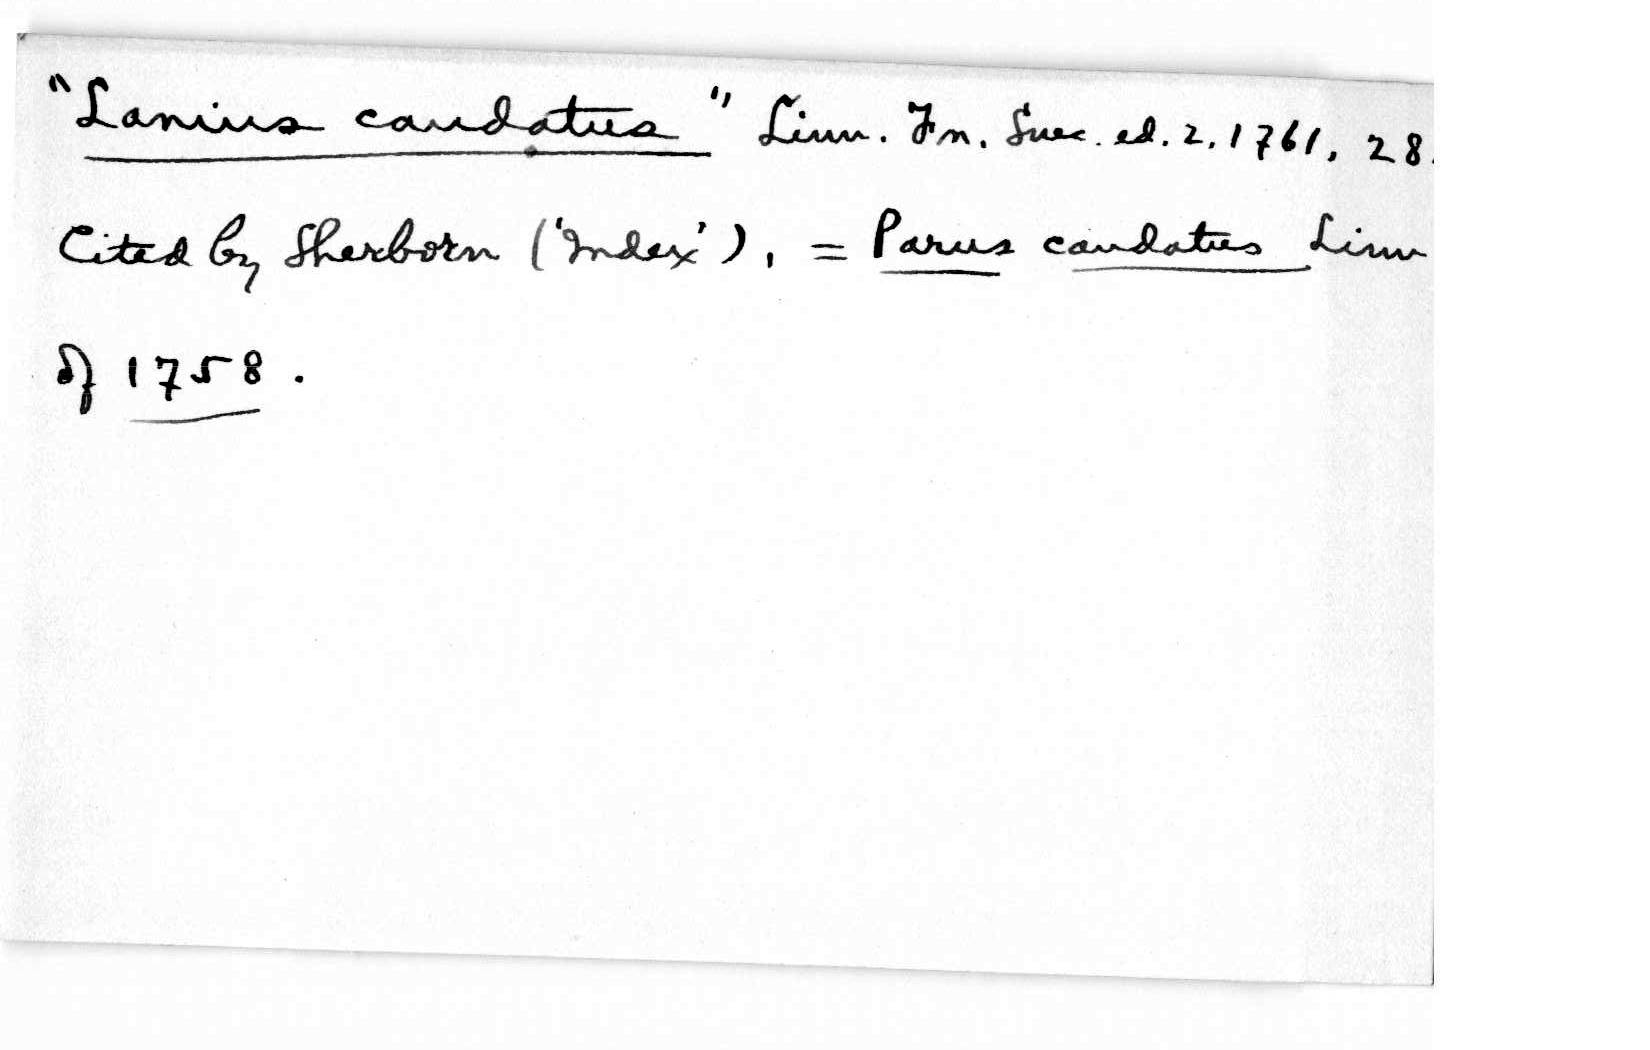 "Lanius caudatus" Linn. Fn. Suec. ed. 2, 1761, 28.
Cited by Sherborn ('Index'), = Parus caudatus Linn
of 1758.